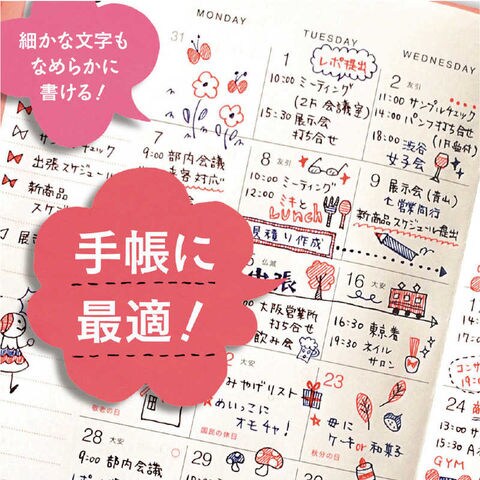 細かな文字も
なめらかに
書ける!
手帳に
最適!
MONDAY
TUESDAY
WEDNESDAY
31
1
レポ提出
10:00 ミーティング
(2F 会議室)
15:30 展示会
打ち合せ
2 友引
11:00 サンプルチェック
14:00 パンフ打ち合せ
(1F受付)
18:00 渋谷
女子会
出張スケジュール
新商品
7
9:00 部内会議
8 友引
10:00 ミーティング
12:00 ミキと
Lunch
見積り作成
9 展示会(青山)
新商品スケジュール提出
仏滅
出張
大阪営業所
打ち合せ
飲み会
16 大安
16:30 東京着
19:30 ネイル
サロン
敬老の日
22 大安
みやげリスト
めいっこに
オモチャ!
国民の休日
23
母に
ケーキor和菓子
秋分の日
28 大安
9:00 部内会議
29
30
24
GYM